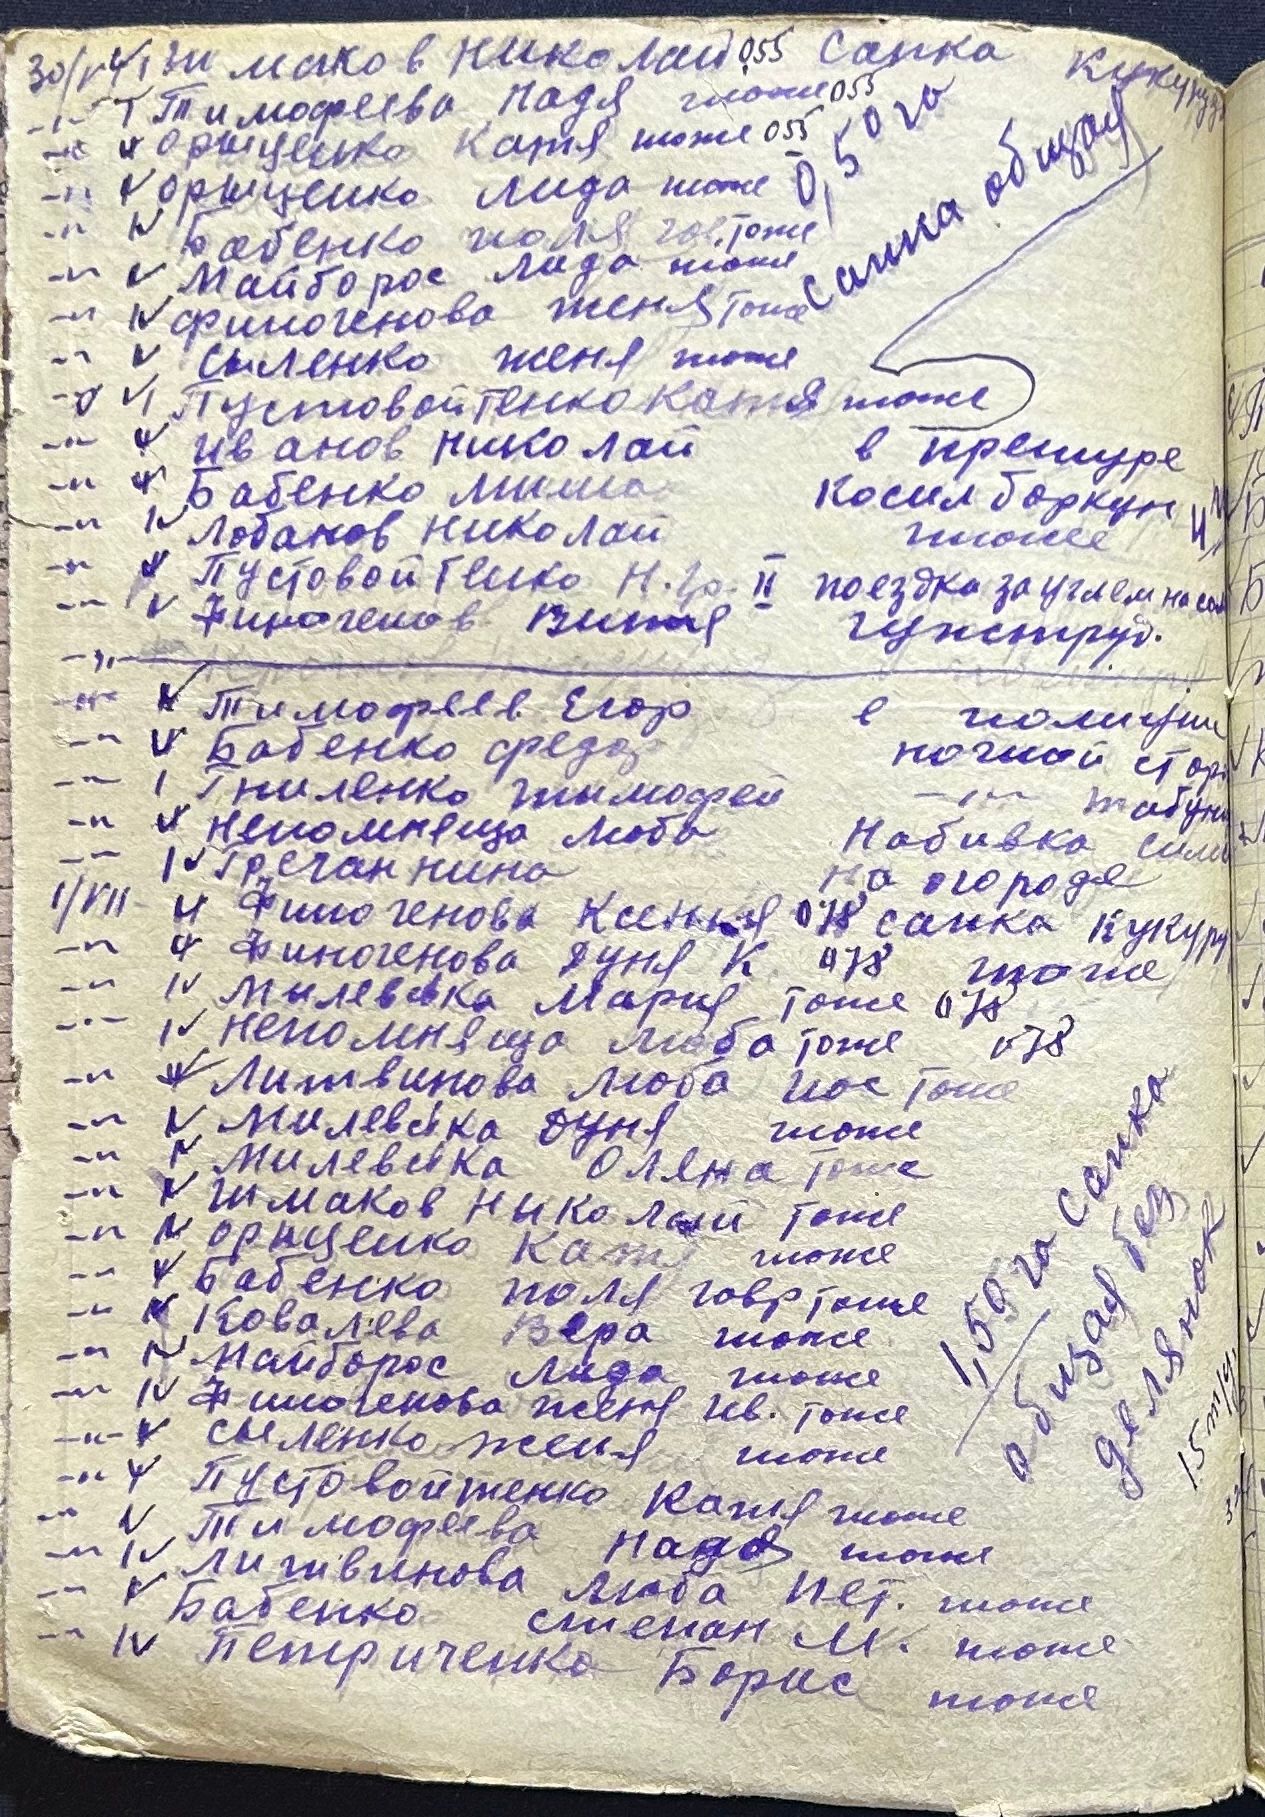 30/VI Шмаков Николай 055 Сапка Кукуруз
-"- Тимофеева Надя тоже 055
-"- Орищенко Катя тоже 055
-"- Орищенко Лида тоже 0,50 га
-"- Бабенко Поля гав. тоже
-"- Майборос Лида тоже
сапка общая
-"- Финогенова Женя тоже
-"- Сыленко Женя тоже
-"- Пустовойтенко Катя тоже
-"- Иванов Николай в прешуре
-"- Бабенко Миша Косил боркун
-"- Лобанов Николай тоже
-"- Пустовойтенко Н. Гр. II поездка за углем на
-"- Финогенов Витя Гужтруд.
-"-
-"- Тимофеев Егор в полиции
-"- Бабенко Федор ночной стор
-"- Гниленко Тимофей -"- табун
-"- Непомняща Люба Набивка
-"- Гречан Нина На огороде
1/VII Финогенова Ксения 078 сапка кукуру
-"- Финогенова Дуня К. 078 тоже
-"- Милевска Мария тоже 078
-"- Непомняща Люба тоже 078
-"- Литвинова Люба иос тоже
-"- Милевска Дуня тоже
-"- Милевска Олена тоже
-"- Шмаков Николай тоже
-"- Орищенко Катя тоже
-"- Бабенко Поля гавр тоже
-"- Ковалева Вера тоже
-"- Майборос Лида тоже
-"- Финогенова Женя ив. тоже
-"- Сыленко Женя тоже
-"- Пустовойтенко Катя тоже
-"- Тимофеева Надя тоже
-"- Литвинова Люба Пет. тоже
-"- Бабенко Степан М. тоже
-"- Петриченко Борис тоже
1,50 га сапка
общая без
делянок